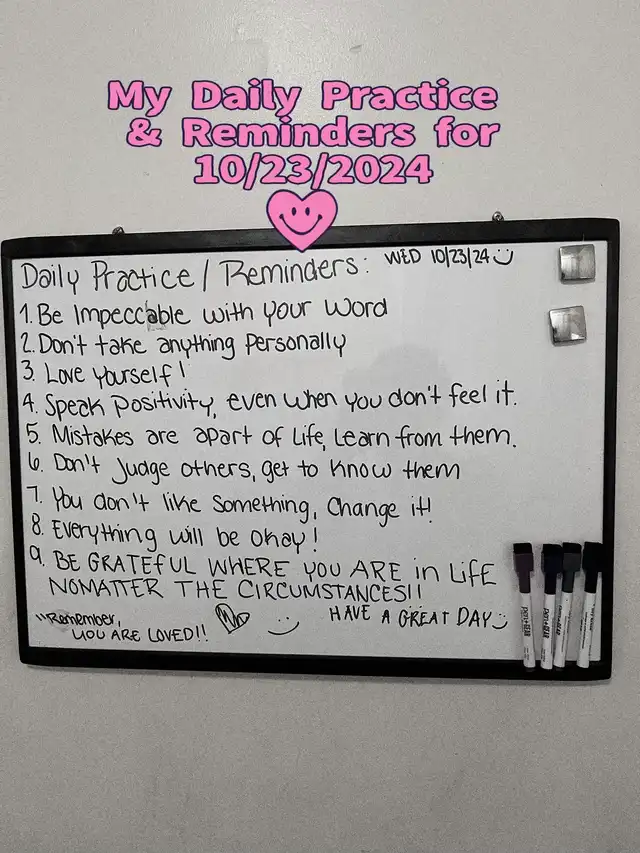 My Daily Practice
& Reminders for
10/23/2024
Daily Practice / Reminders: WED 10/23/24
1. Be Impeccable with your Word
2. Don't take anything Personally
3. Love Yourself!
4. Speak Positivity, even when you don't feel it.
5. Mistakes are apart of Life, Learn from them.
6. Don't Judge others, get to know them
7. You don't like Something, Change it!
8. Everything will be okay!
9. BE GRATEFUL WHERE YOU ARE in LiFE
NOMATTER THE CIRCUMSTANCES!!
"Remember,
YOU ARE LOVED!! HAVE A GREAT DAY